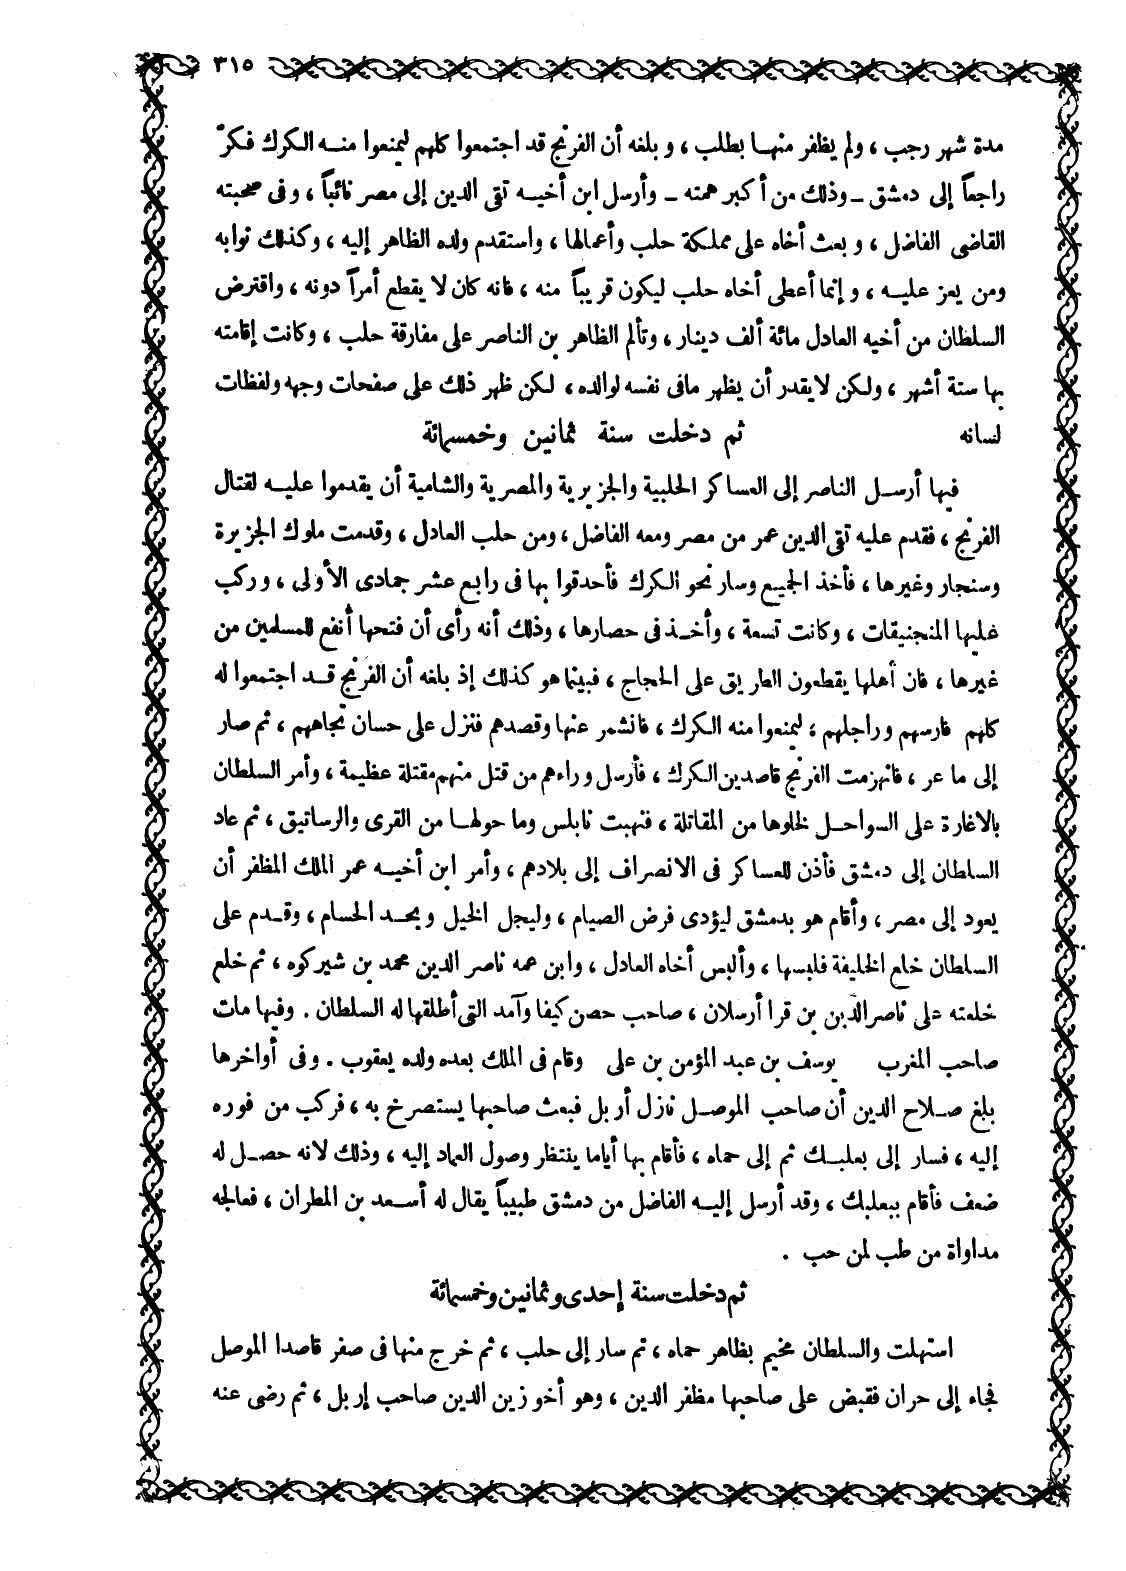 ٣١٥
مدة شهر رجب ، ولم يظفر منها بطلب ، و بلغه أن الفرنج قد اجتمعوا كلهم ليمنعوا منه الكرك فكرّ
راجعاً إلى دمشق ـ وذلك من أكبر همته ـ وأرسل ابن أخيه تقى الدين إلى مصر نائباً ، وفى صحبته
القاضى الفاضل ، و بعث أخاه على مملكة حلب وأعمالها ، واستقدم ولده الظاهر إليه ، وكذلك نوابه
ومن يعز عليه ، و إنما أعطى أخاه حلب ليكون قريباً منه ، فانه كان لا يقطع أمراً دونه ، واقترض
السلطان من أخيه العادل مائة ألف دينار ، وتألم الظاهر بن الناصر على مفارقة حلب ، وكانت إقامته
بها ستة أشهر ، ولكن لا يقدر أن يظهر مافى نفسه لوالده ، لكن ظهر ذلك على صفحات وجهه ولفظات
لسانه ثم دخلت سنة ثمانين وخمسمائة
فيها أرسل الناصر إلى العساكر الحلبية والجزيرية والمصرية والشامية أن يقدموا عليه لقتال
الفرنج ، فقدم عليه تقى الدين عمر من مصر ومعه الفاضل ، ومن حلب العادل ، وقدمت ملوك الجزيرة
وسنجار وغيرها ، فأخذ الجميع وسار نحو الكرك فأحدقوا بها فى رابع عشر جمادى الأولى ، وركب
عليها المنجنيقات ، وكانت تسعة ، وأخذ فى حصارها ، وذلك أنه رأى أن فتحها أنفع للمسلمين من
غيرها ، فان أهلها يقطعون الطريق على الحجاج ، فبينما هو كذلك إذ بلغه أن الفرنج قد اجتمعوا له
كلهم فارسهم وراجلهم ، ليمنعوا منه الكرك ، فانشمر عنها وقصدهم فنزل على حسان تجاههم ، ثم صار
إلى ما عر ، فانهزمت الفرنج قاصدين الكرك ، فأرسل وراءهم من قتل منهم مقتلة عظيمة ، وأمر السلطان
بالاغارة على السواحل لخلوها من المقاتلة ، فنهبت نابلس وما حولها من القرى والرساتيق ، ثم عاد
السلطان إلى دمشق فأذن للعساكر فى الانصراف إلى بلادهم ، وأمر ابن أخيه عمر الملك المظفر أن
يعود إلى مصر ، وأقام هو بدمشق ليؤدى فرض الصيام ، وليجل الخيل ويحد الحسام ، وقدم على
السلطان خلع الخليفة فلبسها ، وألبس أخاه العادل ، وابن عمه ناصر الدين محمد بن شيركوه ، ثم خلع
خلعته على ناصر الدين بن قرا أرسلان ، صاحب حصن كيفا وآمد التى أطلقها له السلطان . وفيها مات
صاحب المغرب يوسف بن عبد المؤمن بن على وقام فى الملك بعده ولده يعقوب . وفى أواخرها
بلغ صلاح الدين أن صاحب الموصل نازل أربل فبعث صاحبها يستصرخ به ، فركب من فوره
إليه ، فسار إلى بعلبك ثم إلى حماه ، فأقام بها أياما ينتظر وصول العماد إليه ، وذلك لانه حصل له
ضعف فأقام ببعلبك ، وقد أرسل إليه الفاضل من دمشق طبيباً يقال له أسعد بن المطران ، فعالجه
مداواة من طب لمن حب .
ثم دخلت سنة إحدى وثمانين وخمسمائة
استهلت والسلطان مخيم بظاهر حماه ، ثم سار إلى حلب ، ثم خرج منها فى صفر قاصدا الموصل
فجاء إلى حران فقبض على صاحبها مظفر الدين ، وهو أخو زين الدين صاحب إربل ، ثم رضى عنه